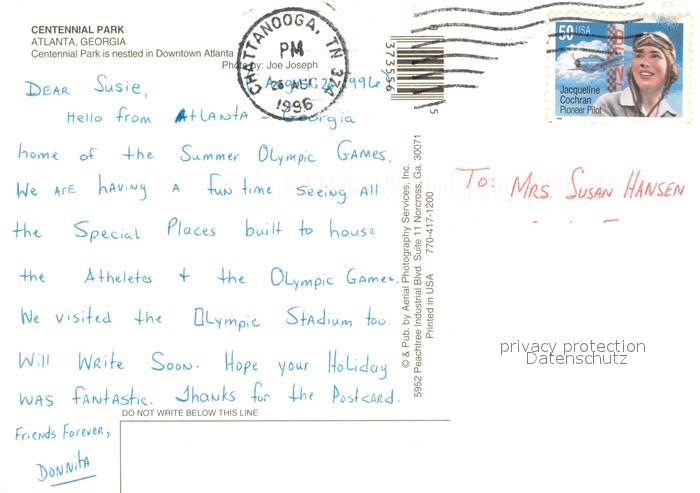 CENTENNIAL PARK
ATLANTA, GEORGIA
Centennial Park is nestled in Downtown Atlanta
Photo by: Joe Joseph
CHATTANOOGA, TN 374
PM
26 AUG
1996
August 1996
DEAR Susie,
Hello from ATLANTA - Georgia
home of the Summer Olympic Games.
We are having a fun time seeing all
the Special Places built to house
the Atheletes + the Olympic Games.
We visited the Olympic Stadium too.
Will Write Soon. Hope your Holiday
was fantastic. Thanks for the Postcard.
Friends Forever,
Donnita
DO NOT WRITE BELOW THIS LINE
373556
© & Pub. by Aerial Photography Services, Inc.
5952 Peachtree Industrial Blvd. Suite 11 Norcross, Ga. 30071
Printed in USA 770-417-1200
50 USA
Jacqueline
Cochran
Pioneer Pilot
To: MRS. SUSAN HANSEN
privacy protection
Datenschutz